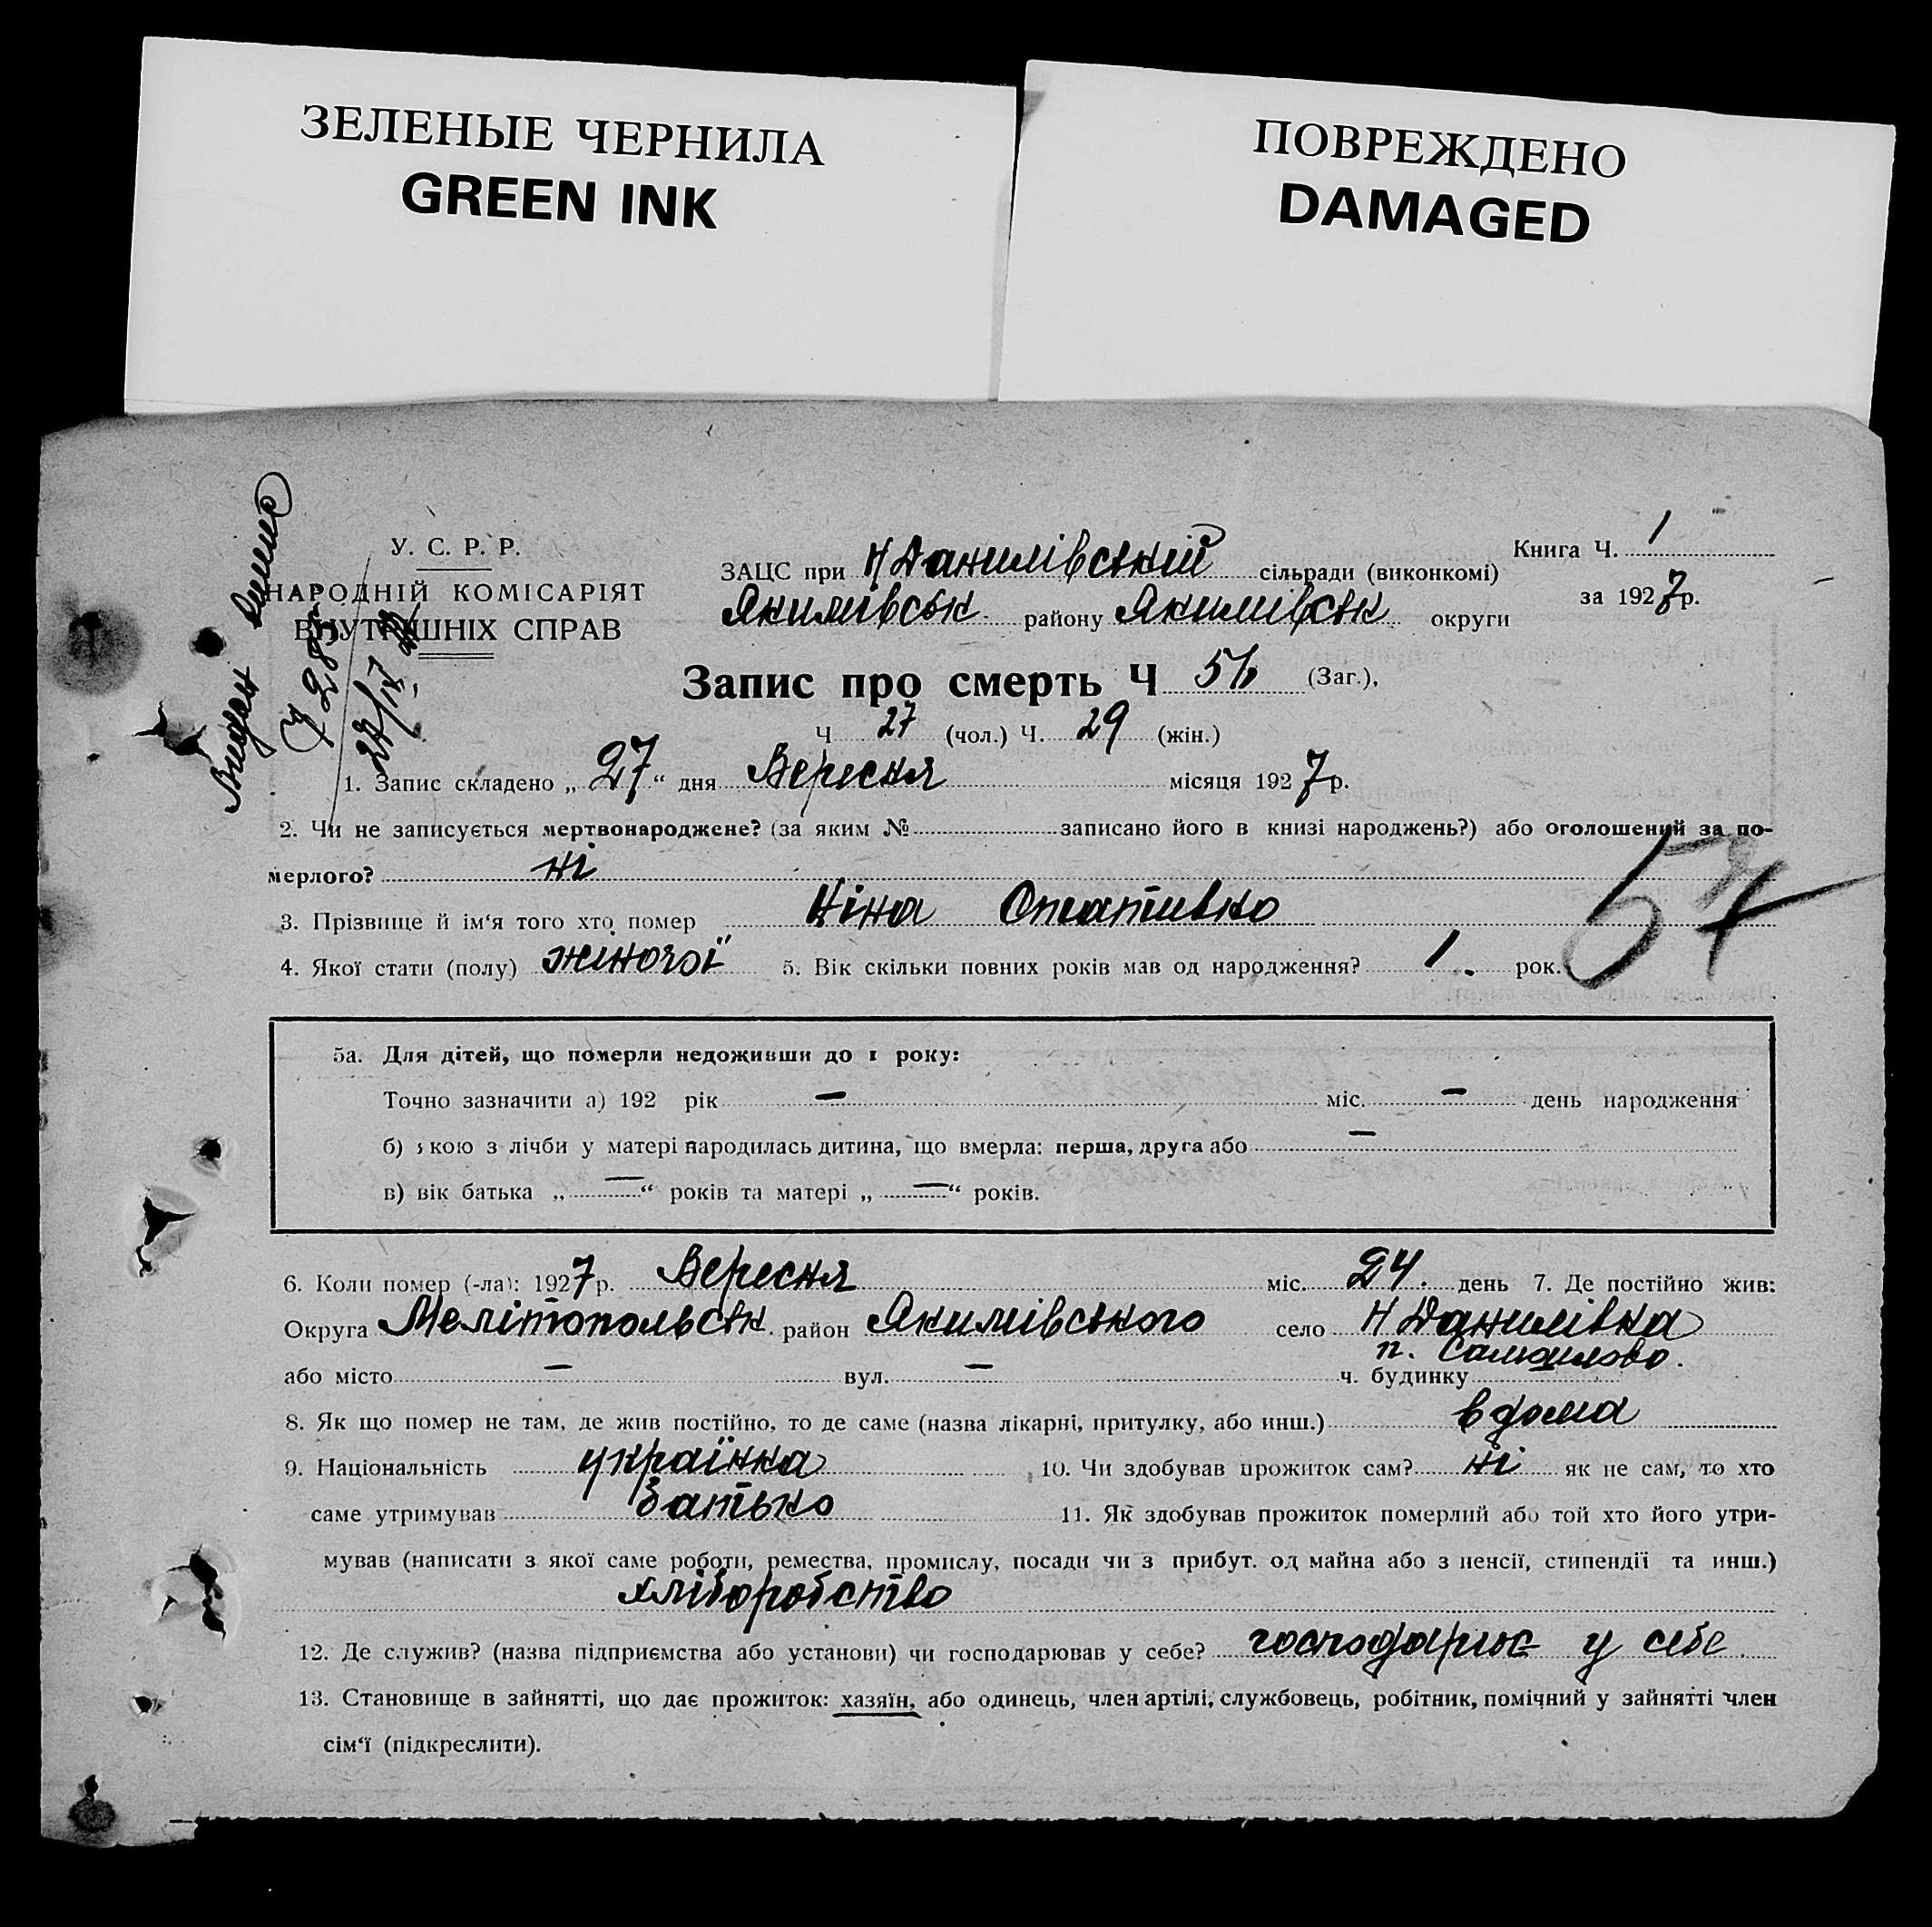 ЗЕЛЕНЫЕ ЧЕРНИЛА
GREEN INK
ПОВРЕЖДЕНО
DAMAGED
У. С. Р. Р.
НАРОДНІЙ КОМІСАРІЯТ
ВНУТРІШНІХ СПРАВ
ЗАЦС при Н Данилівській сільради (виконкомі)
Якимівськ. району Якимівськ. округи
Книга Ч. 1
за 1927 р.
Запис про смерть Ч (Заг.),
Ч 27 (чол.) Ч. 29 (жін.)
1. Запис складено „27“ дня Вересня місяця 1927 р.
2. Чи не записується мертвонароджене? (за яким № записано його в книзі народжень?) або оголошений за по-
мерлого? ні
3. Прізвище й ім‘я того хто помер Ніна
4. Якої статі (полу) жіночої 5. Вік скільки повних років мав од народження? 1. рок.
5а. Для дітей, що померли недоживши до 1 року:
Точно зазначити а) 192 рік — міс. — день народження
б) якою з лічби у матері народилась дитина, що вмерла: перша, друга або —
в) вік батька „—“ років та матері „—“ років.
6. Коли помер (-ла): 1927 р. Вересня міс. 24. день 7. Де постійно жив:
Округа Мелітопольськ. район Якимівського село Н Данилівка
п.
або місто — вул. — ч. будинку
8. Як що помер не там, де жив постійно, то де саме (назва лікарні, притулку, або инш.) вдома
9. Національність українка 10. Чи здобував прожиток сам? ні як не сам, то хто
саме утримував батько 11. Як здобував прожиток померлий або той хто його утри-
мував (написати з якої саме роботи, ремества, промислу, посади чи з прибут. од майна або з пенсії, стипендії та инш.)
хліборобство
12. Де служив? (назва підприємства або установи) чи господарював у себе? господарює у себе
13. Становище в зайнятті, що дає прожиток: хазяїн, або одинець, член артілі, службовець, робітник, помічний у зайнятті член
сім‘ї (підкреслити).